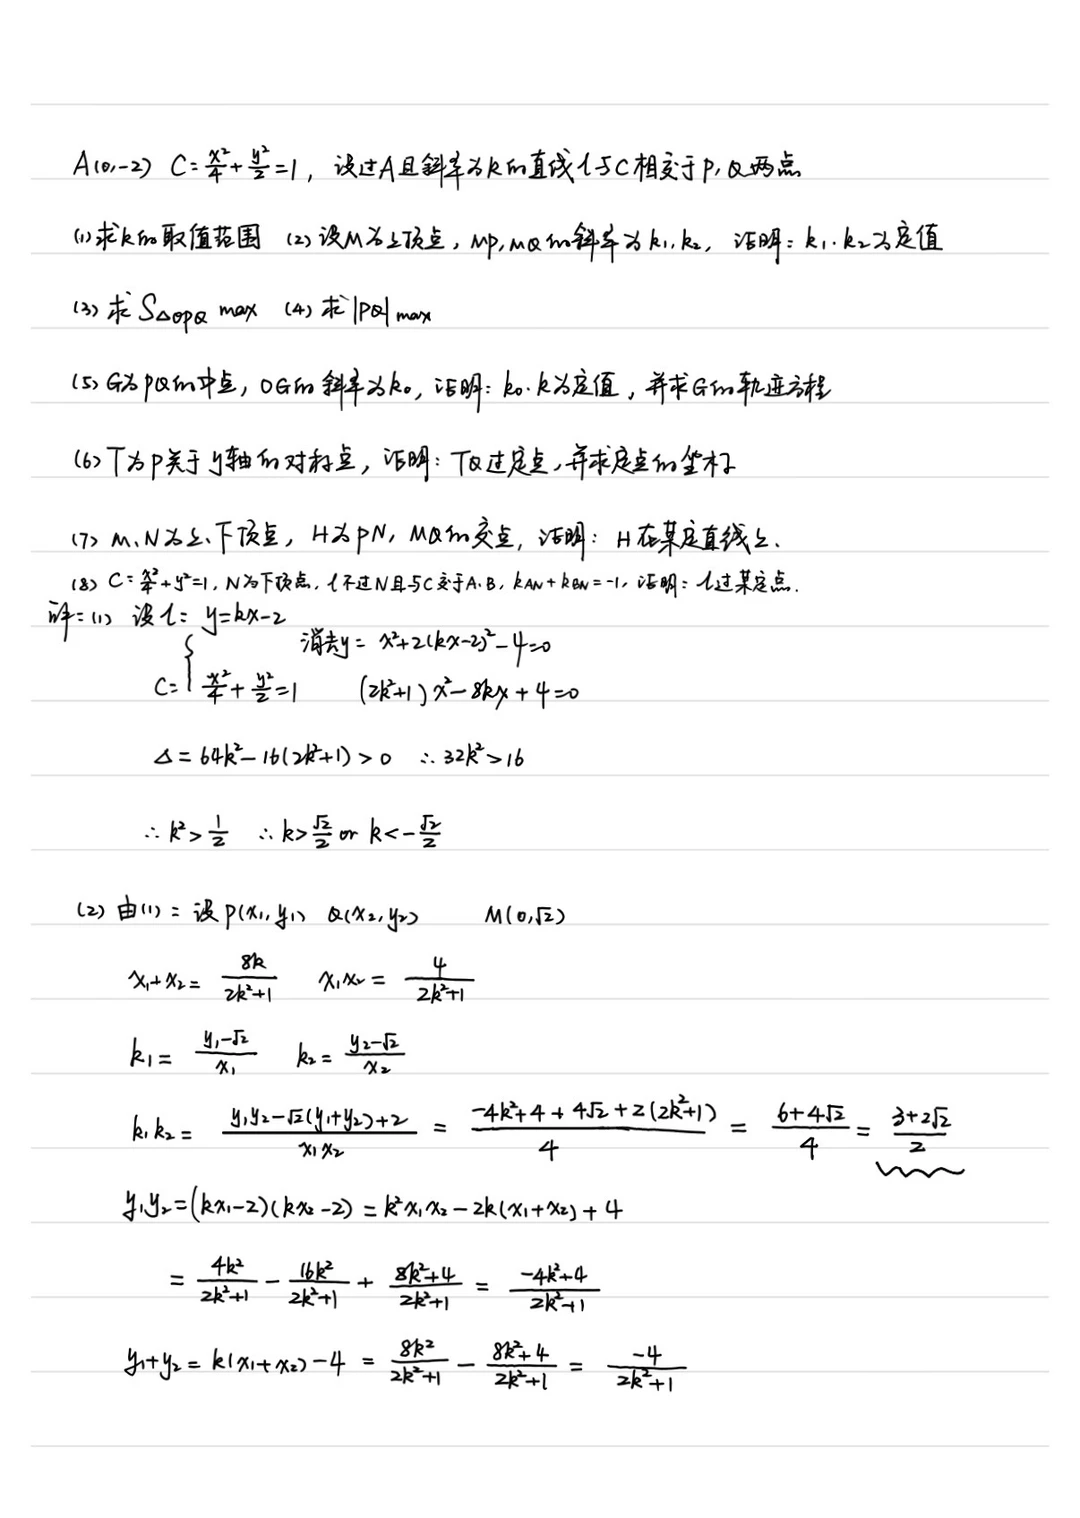 A(0,-2) C: x²/4 + y²/2 = 1, 设过A且斜率为k的直线l与C相交于P,Q两点
(1)求k的取值范围 (2)设M为上顶点, MP,MQ的斜率为k₁,k₂, 证明: k₁·k₂为定值
(3)求S△OPQ max (4)求|PQ|max
(5)G为PQ的中点, OG的斜率为k₀, 证明: k₀·k为定值, 并求G的轨迹方程
(6)T为P关于y轴的对称点, 证明: TQ过定点, 并求定点的坐标
(7) M、N为上、下顶点, H为PN, MQ的交点, 证明: H在某定直线上.
(8) C: x²/4 + y² = 1, N为下顶点, l不过N且与C交于A.B, k_AN + k_BN = -1, 证明: l过某定点.
解:(1) 设l: y=kx-2
消去y: x²+2(kx-2)²-4=0
C: x²/4 + y²/2 = 1 (2k²+1)x²-8kx+4=0
Δ = 64k²-16(2k²+1) > 0 ∴ 32k² > 16
∴ k² > 1/2 ∴ k > √2/2 or k < -√2/2
(2) 由(1): 设P(x₁,y₁) Q(x₂,y₂) M(0,√2)
x₁+x₂ = 8k/(2k²+1) x₁x₂ = 4/(2k²+1)
k₁ = (y₁-√2)/x₁ k₂ = (y₂-√2)/x₂
k₁k₂ = (y₁y₂-√2(y₁+y₂)+2)/(x₁x₂) = (-4k²+4+4√2+2(2k²+1))/4 = (6+4√2)/4 = (3+2√2)/2
y₁y₂ = (kx₁-2)(kx₂-2) = k²x₁x₂-2k(x₁+x₂)+4
= 4k²/(2k²+1) - 16k²/(2k²+1) + (8k²+4)/(2k²+1) = (-4k²+4)/(2k²+1)
y₁+y₂ = k(x₁+x₂)-4 = 8k²/(2k²+1) - (8k²+4)/(2k²+1) = -4/(2k²+1)